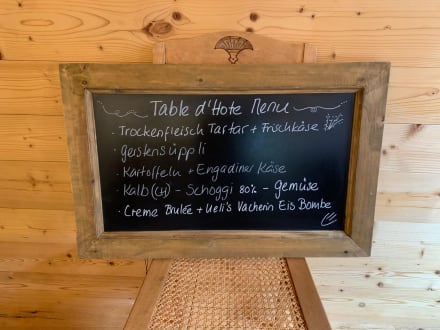 Table d'Hote Menu
· Trockenfleisch Tartar + Frischkäse
· gerstensüppli
· Kartoffeln + Engadiner Käse
· Kalb (CH) - Schoggi 80% - gemüse
· Creme Brulée + Ueli's Vacherin Eis Bombe